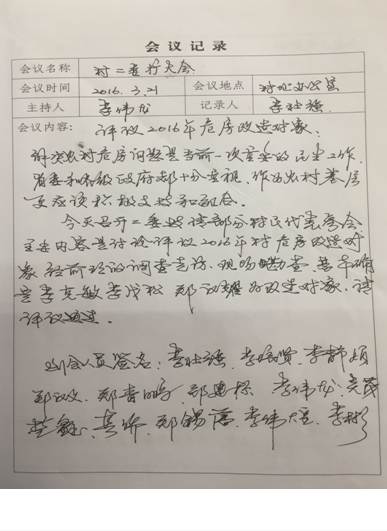 会议记录
会议名称 村二委扩大会
会议时间 2016.3.21 会议地点 村办公室
主持人 李伟龙 记录人 李壮强
会议内容: 评议2016年危房改造对象.
农村危房问题是当前一项重要的民生工作,
省委和各级政府都十分重视,作为农村基层
更应该积极支持和配合。
今天召开二委扩请部分村民代表参会
主要内容是讨论评议2016年村危房改造对
象,经前段的调查走访、现场勘查,基本确
定李克敏 李 松 郑 为改造对象,请
评议通过。
参会人员签名: 李壮强. 李 贤. 李静娟
郑 . 郑春鸣. 郑 . 李伟龙.
. . 郑锡 . 李伟 . 李彬